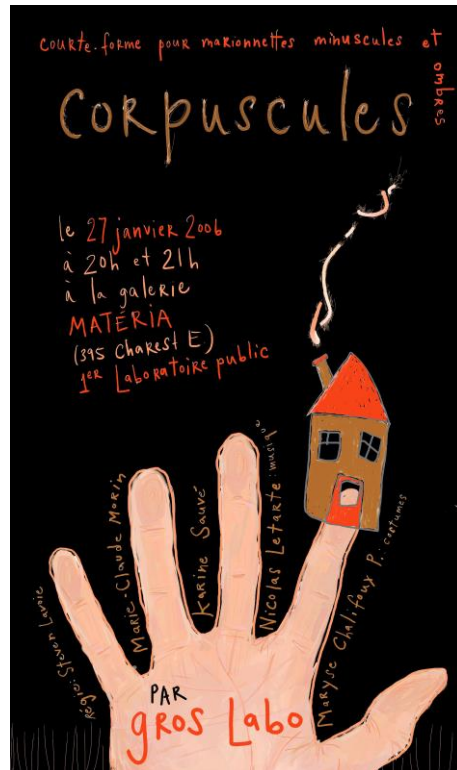 courte-forme pour marionnettes minuscules et ombres
Corpuscules
le 27 janvier 2006
à 20h et 21h
à la galerie
MATÉRIA
(395 Charest E)
1er Laboratoire public
Régie: Steven Lavoie
Marie-Claude Morin
Karine Sauvé
Nicolas Letarte: musique
Maryse Chalifoux P.: costumes
PAR
gros Labo